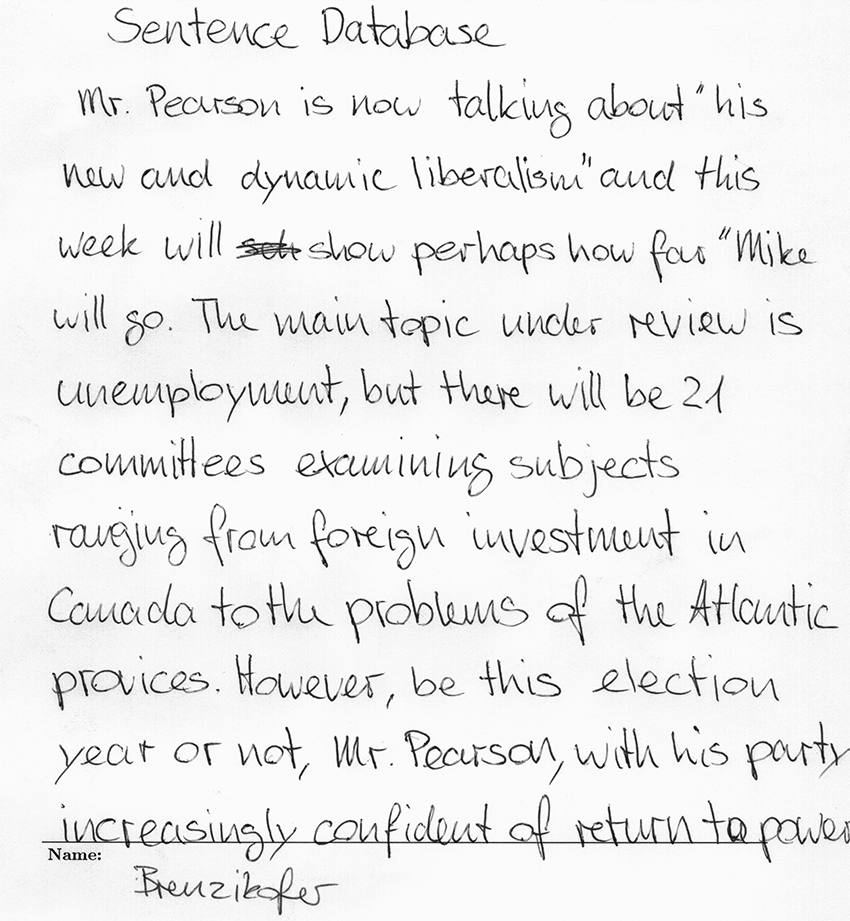 Sentence Database
Mr. Pearson is now talking about "his
new and dynamic liberalism" and this
week will show perhaps how far "Mike
will go. The main topic under review is
unemployment, but there will be 21
committees examining subjects
ranging from foreign investment in
Canada to the problems of the Atlantic
provices. However, be this election
year or not, Mr. Pearson, with his party
increasingly confident of return to power
Name:
Brenzikofer